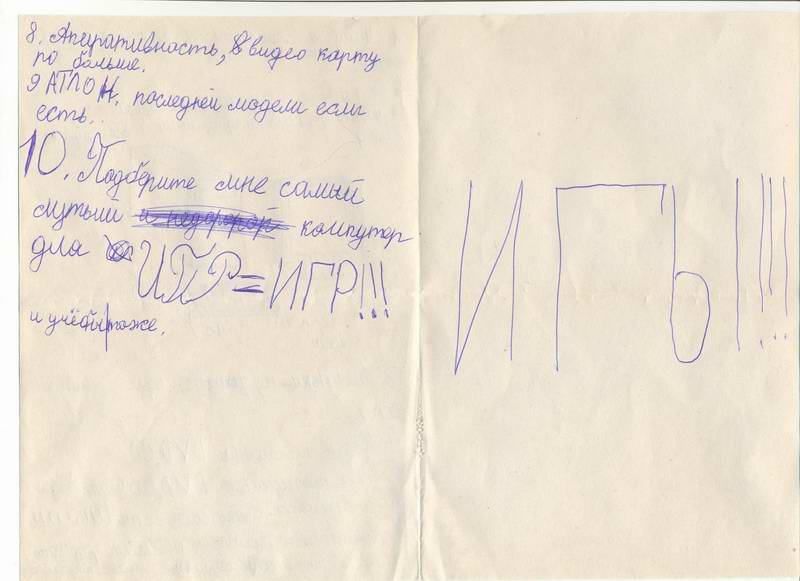 8. Аперативность, в видео карту
по больше.
9 АТЛОН, последней модели если
есть..
10. Подберите мне самый
кутый и недорогой компутер
для
ИГР=ИГР!!!
и учёбы тоже.
ИГЫ!!!!